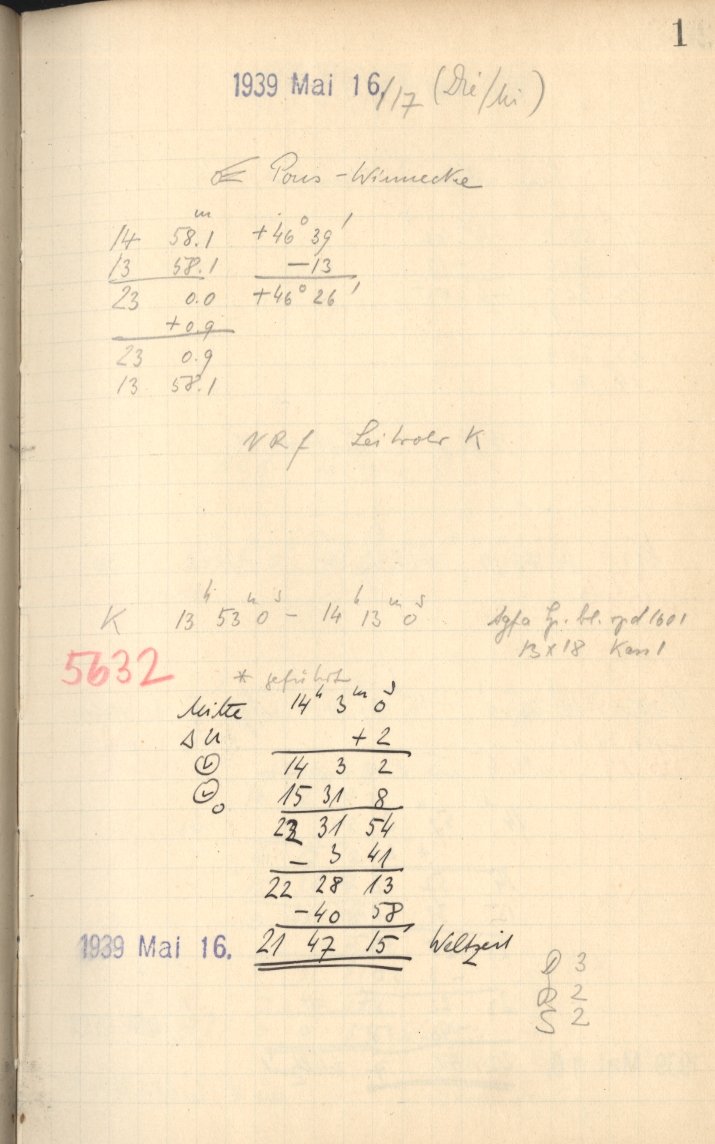 1
1939 Mai 16/17 (Die/Mi)
☄ Pons-Winnecke
14 58.1ᵐ +46° 39'
13 58.1 -13
23 0.0 +46° 26'
+0.9
23 0.9
13 58.1
NRf Leitrohr K
K 13ʰ 53ᵐ 0ˢ - 14ʰ 13ᵐ 0ˢ Agfa 1601
5632 13x18 Kass 1
* geführt
Mitte 14ʰ 3ᵐ 0ˢ
Δu +2
14 3 2
15 31 8
22 31 54
- 3 41
22 28 13
-40 58
1939 Mai 16. 21 47 15 Weltzeit
D 3
R 2
S 2